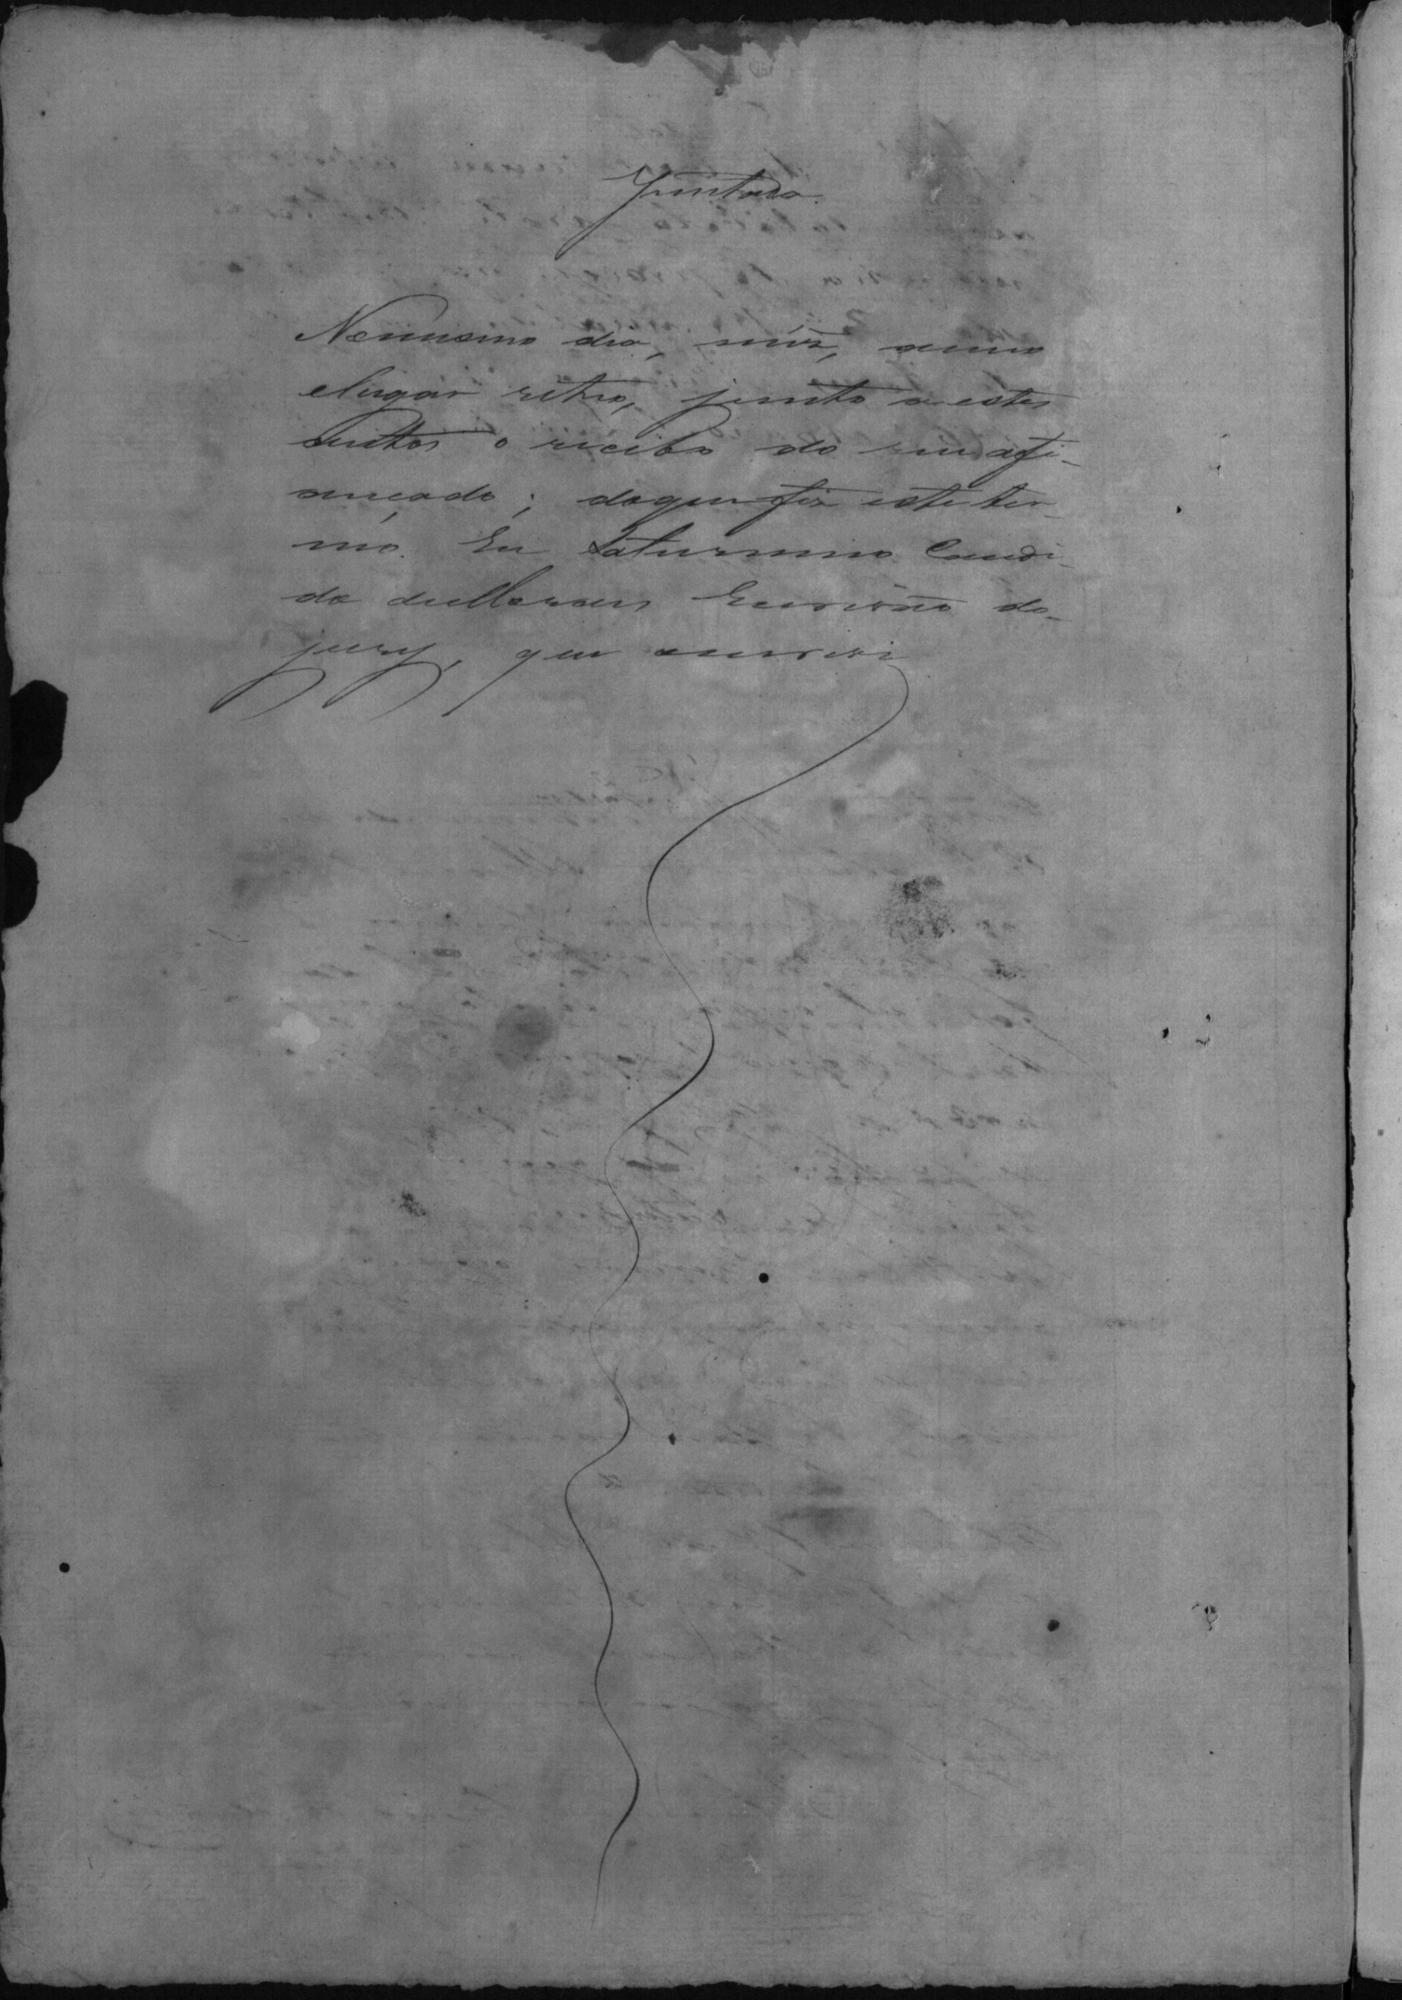 Juntada.
No mesmo dia, mez, anno
e lugar retro, junto a estes
autos o recibo do reu afi-
ançado; do que fiz este ter-
mo. Eu Saturnino Candi-
do de Moraes Escrivão do
jury, que escrevi